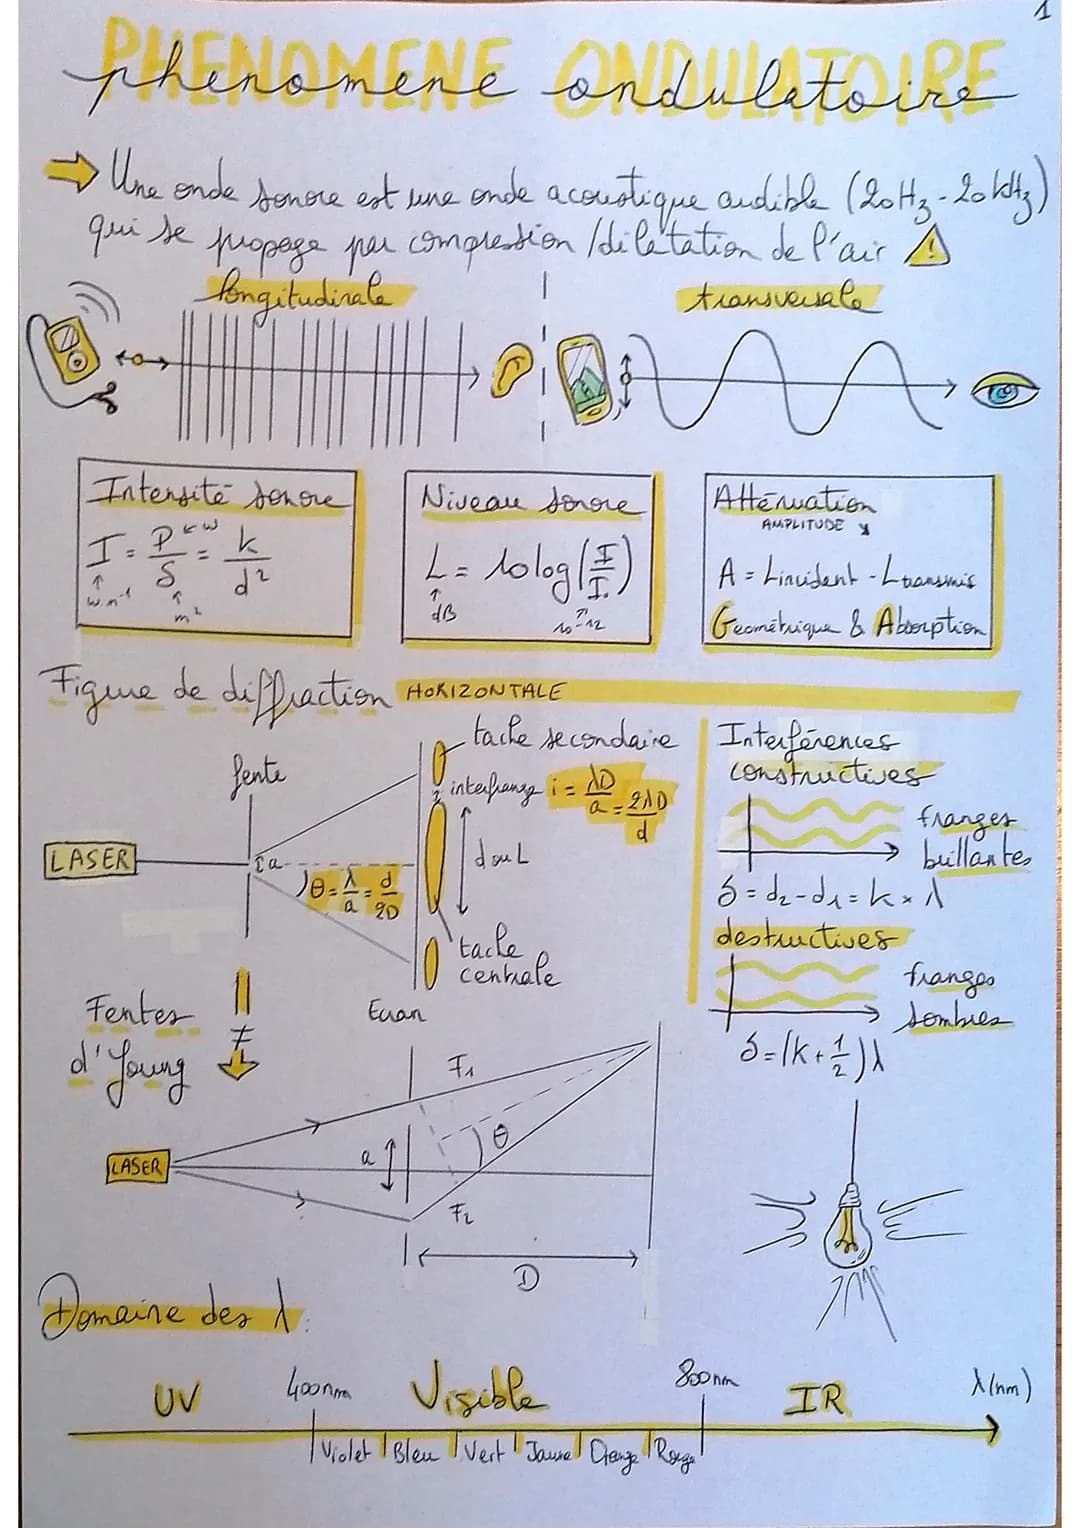 1
PHENOMENE ONDULATOIRE
phenomene ondulatoire
Une onde sonore est une onde acoustique audible (20Hz-20kHz)
qui se propage par compression/dilatation de l'air
longitudinale
transversale
Intensité sonore
I = P/S = k/d²
← W
W.m⁻¹
m²
Niveau sonore
L = 10log(I/I₀)
dB
10⁻¹²
Atténuation
AMPLITUDE ↘
A = Lincident - Ltransmis
Géométrique & Absorption
Figure de diffraction HORIZONTALE
LASER
fente
a
θ = λ/a = d/2D
tache secondaire
interfrange i = λD/a = 2λD/d
d ou L
tache
centrale
Ecran
Interférences
constructives
franges
brillantes
δ = d₂-d₁ = k × λ
destructives
franges
sombres
δ = (k + 1/2)λ
Fentes
d'Young
≠
LASER
F₁
a
θ
F₂
D
Domaine des λ:
UV
400nm
Visible
800nm
IR
λ(nm)
Violet Bleu Vert Jaune Orange Rouge